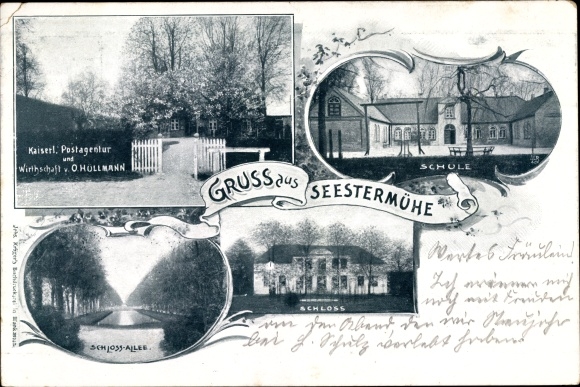 Kaiserl. Postagentur
und
Wirthschaft v. O. HÜLLMANN
SCHULE
GRUSS aus SEESTERMÜHE
SCHLOSS
SCHLOSS-ALLEE.
Wertes Fräulein!
Ich erinnere mich
noch mit Freuden
an den Abend, den wir Neujahr
bei H. Schulz verlebt haben.